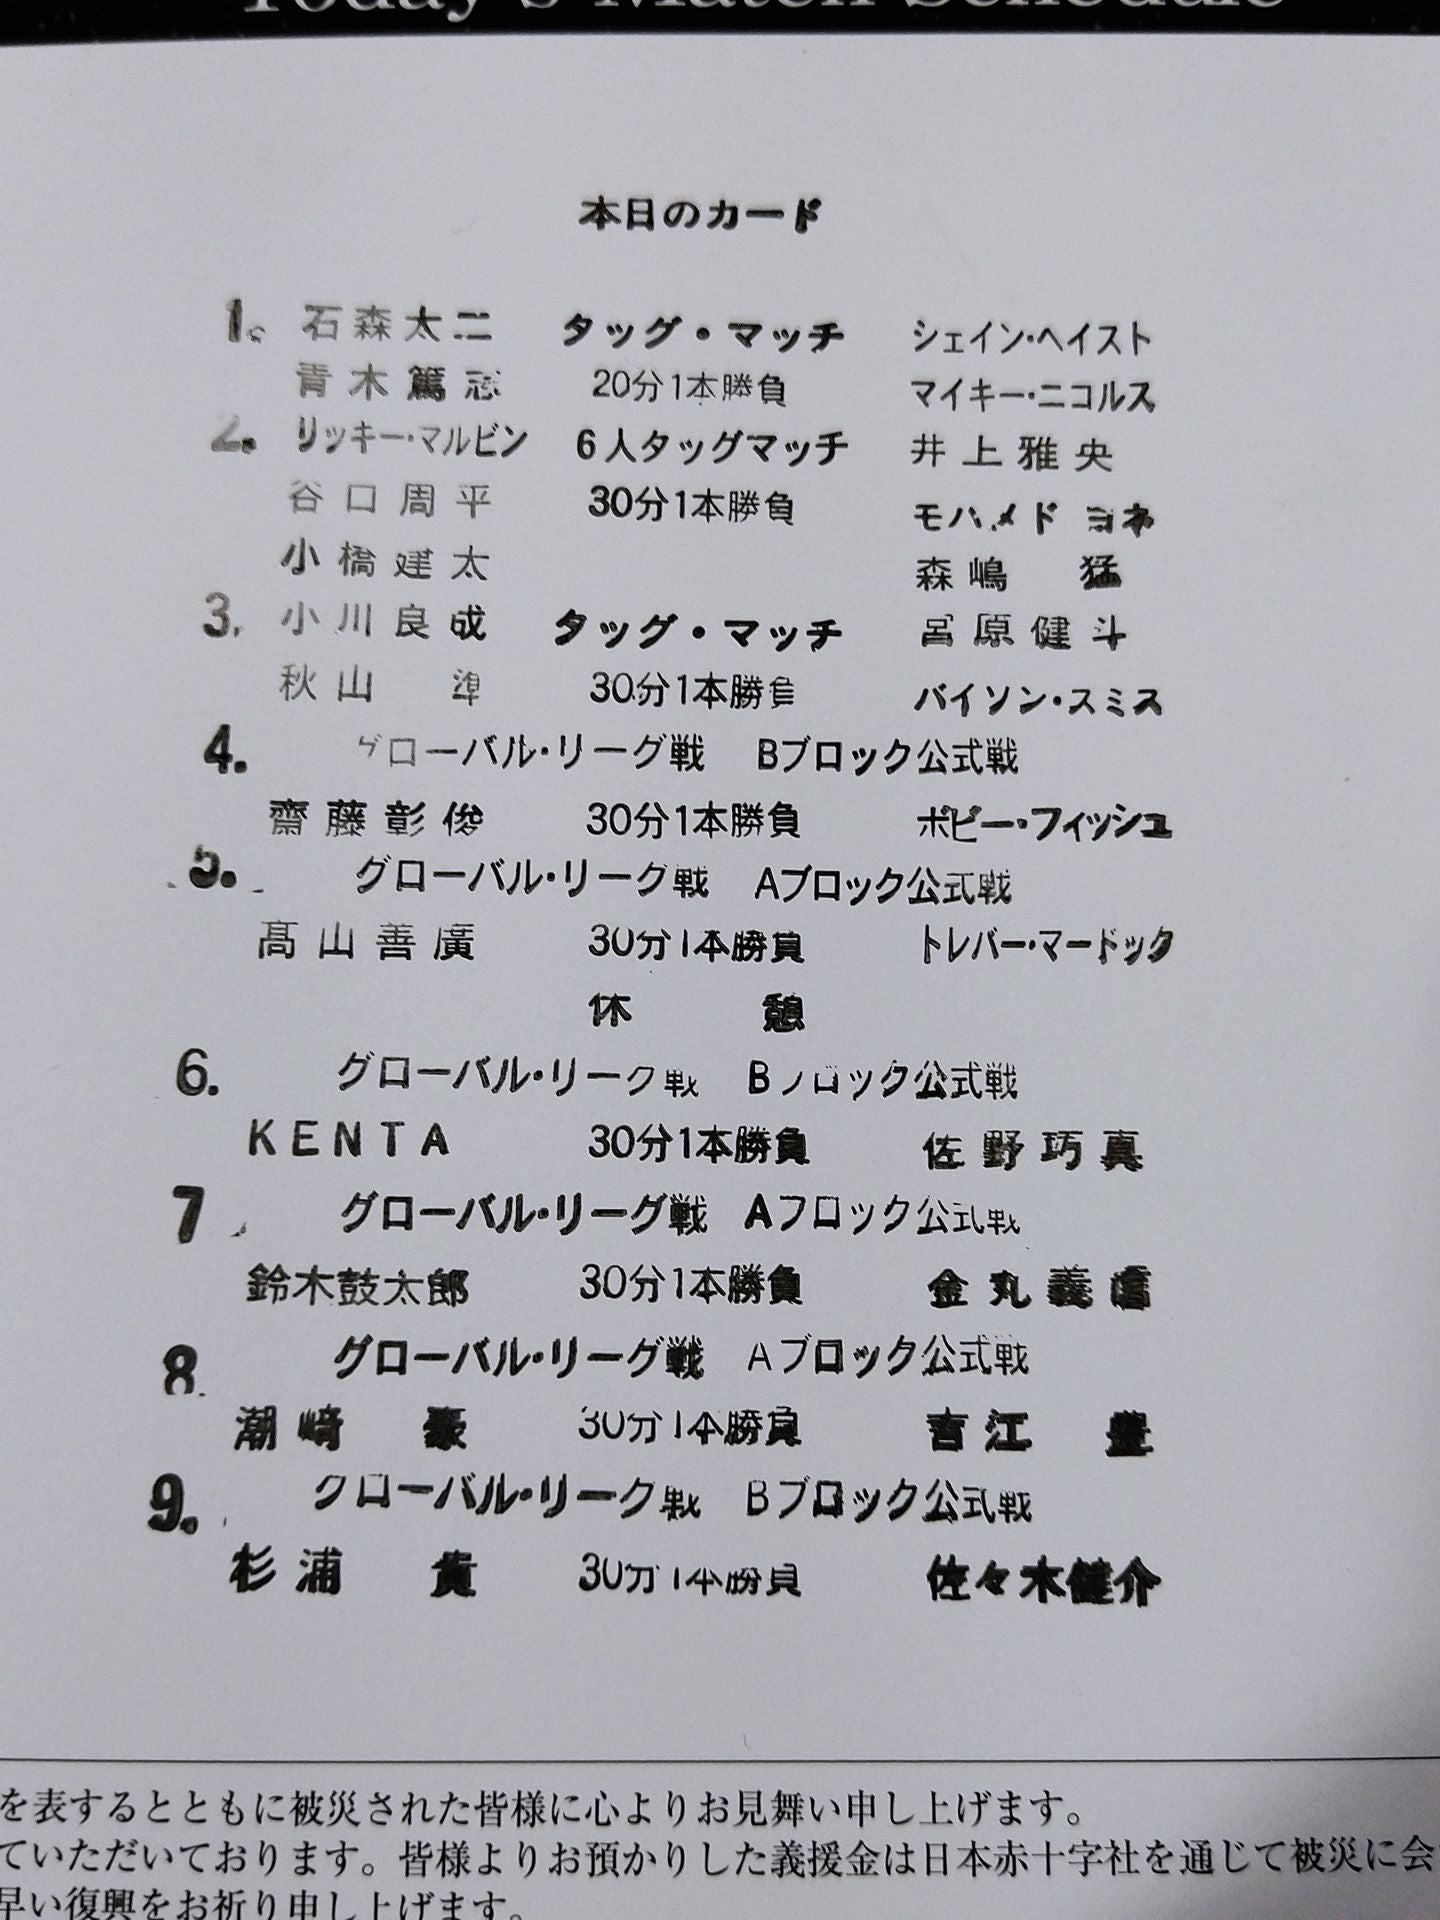 Today's Match Schedule
本日のカード
1. 石森太二 タッグ・マッチ シェイン・ヘイスト
青木篤志 20分1本勝負 マイキー・ニコルス
2. リッキー・マルビン 6人タッグマッチ 井上雅央
谷口周平 30分1本勝負 モハメド ヨネ
小橋建太 森嶋 猛
3. 小川良成 タッグ・マッチ 宮原健斗
秋山 準 30分1本勝負 バイソン・スミス
4. グローバル・リーグ戦 Bブロック公式戦
齋藤彰俊 30分1本勝負 ボビー・フィッシュ
5. グローバル・リーグ戦 Aブロック公式戦
髙山善廣 30分1本勝負 トレバー・マードック
休 憩
6. グローバル・リーグ戦 Bブロック公式戦
KENTA 30分1本勝負 佐野巧真
7. グローバル・リーグ戦 Aブロック公式戦
鈴木鼓太郎 30分1本勝負 金丸義信
8. グローバル・リーグ戦 Aブロック公式戦
潮﨑 豪 30分1本勝負 吉江 豊
9. グローバル・リーグ戦 Bブロック公式戦
杉浦 貴 30分1本勝負 佐々木健介
を表するとともに被災された皆様に心よりお見舞い申し上げます。
ていただいております。皆様よりお預かりした義援金は日本赤十字社を通じて被災に会
早い復興をお祈り申し上げます。